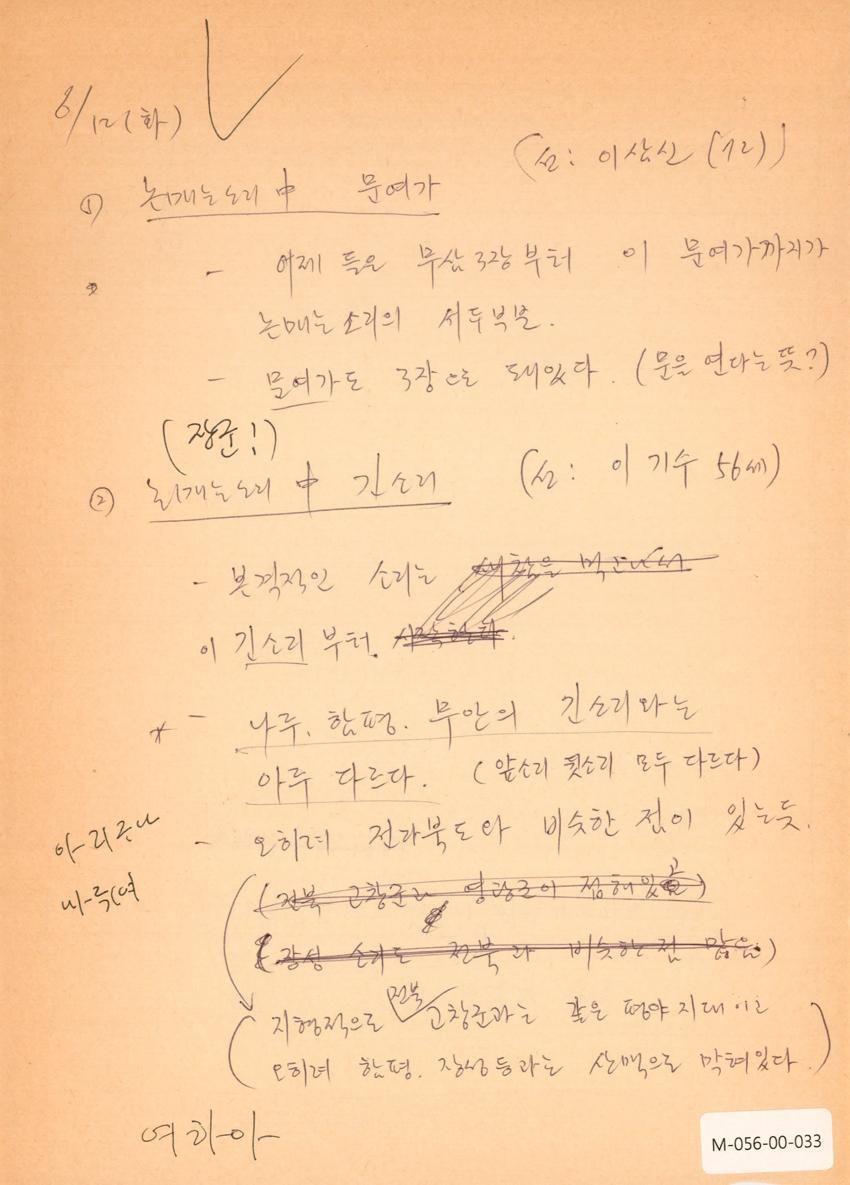 6/12 (화)
(선: 이상신 (72))
① 논매는소리 中 문여가
- 어제 들은 무삼 3장부터 이 문여가까지가
논매는 소리의 서두부분.
- 문여가도 3장으로 돼있다. (문을 연다는 뜻?)
(장군!)
② 논매는소리 中 긴소리 (선: 이기수 56세)
- 본격적인 소리는
이 긴소리부터.
* - 나주, 함평, 무안의 긴소리와는
아주 다르다. (앞소리 뒷소리 모두 다르다)
- 오히려 전라북도와 비슷한 점이 있는듯.
(전북 고창군과 영광군이 접해있고)
장성 소리도 전북과 비슷한 점 많음)
(지형적으로 전북 고창군과는 같은 평야지대이고
오히려 함평, 장성 등과는 산맥으로 막혀있다.)
여하아
M-056-00-033